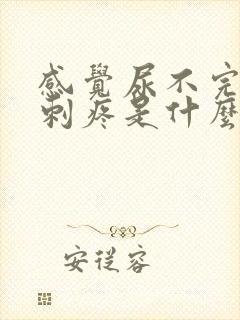 感覺尿不完
刺疼是什麼
安從容